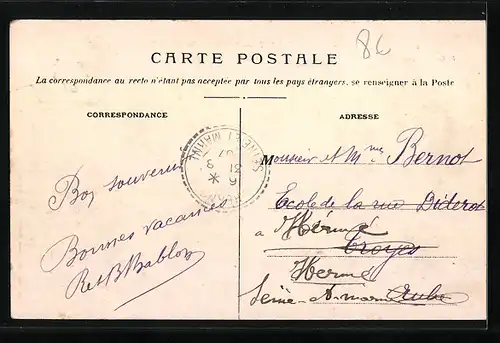 86
CARTE POSTALE
La correspondance au recto n'étant pas acceptée par tous les pays étrangers, se renseigner à la Poste
CORRESPONDANCE
ADRESSE
Monsieur et Mme Bernot
Ecole de la rue Diderot
a Hermé
Troyes
Hermé
Seine-et-Marne Aube
Bon souvenir
Bonnes vacances
SEINE ET MARNE